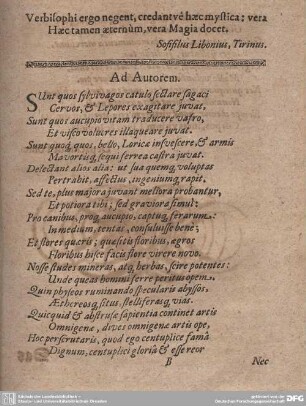 Verbisophi ergo negent, credantvé hæc mystica; vera
Hæc tamen æternùm, vera Magia docet.
Sofiftlus Libonius, Tirinus.
Ad Autorem.
SUnt quos sylvivagos catulo sectare sagaci
Cervos, & Lepores exagitare juvat.
Sunt quos aucupio vitam traducere vafro,
Et visco volucres illaqueare juvat.
Sunt quoq; quos, bello, Loricæ insvescere, & armis
Mavortiuq; sequi ferrea castra juvat.
Delectant alios alia: ut sua quemq; voluptas
Pertrahit, affectus, ingeniumq; rapit.
Sed te, plus majora juvant meliora probantur,
Et potiora tibi; sed graviora simul:
Pro canibus, proq; aucupio, captuq; ferarum:
In medium, tentas, consuluisse bene;
Et flores quæris; quæsitis floribus, agros
Floribus hisce facis store virere novo.
Nosse studes mineras, atq; herbas, scire potentes:
Unde queas homini ferre peritus opem.
Quin physeos ruminando spectacularis abyssos,
Æthereosq; situs, stelliferasq; vias.
Quicquid & abstrusæ sapientia continet artis
Omnigenæ, dives omnigenæ artis ope,
Hoc perscrutaris, quod ego centuplice famâ
Dignum, centuplici gloriâ & esse reor
B Nec